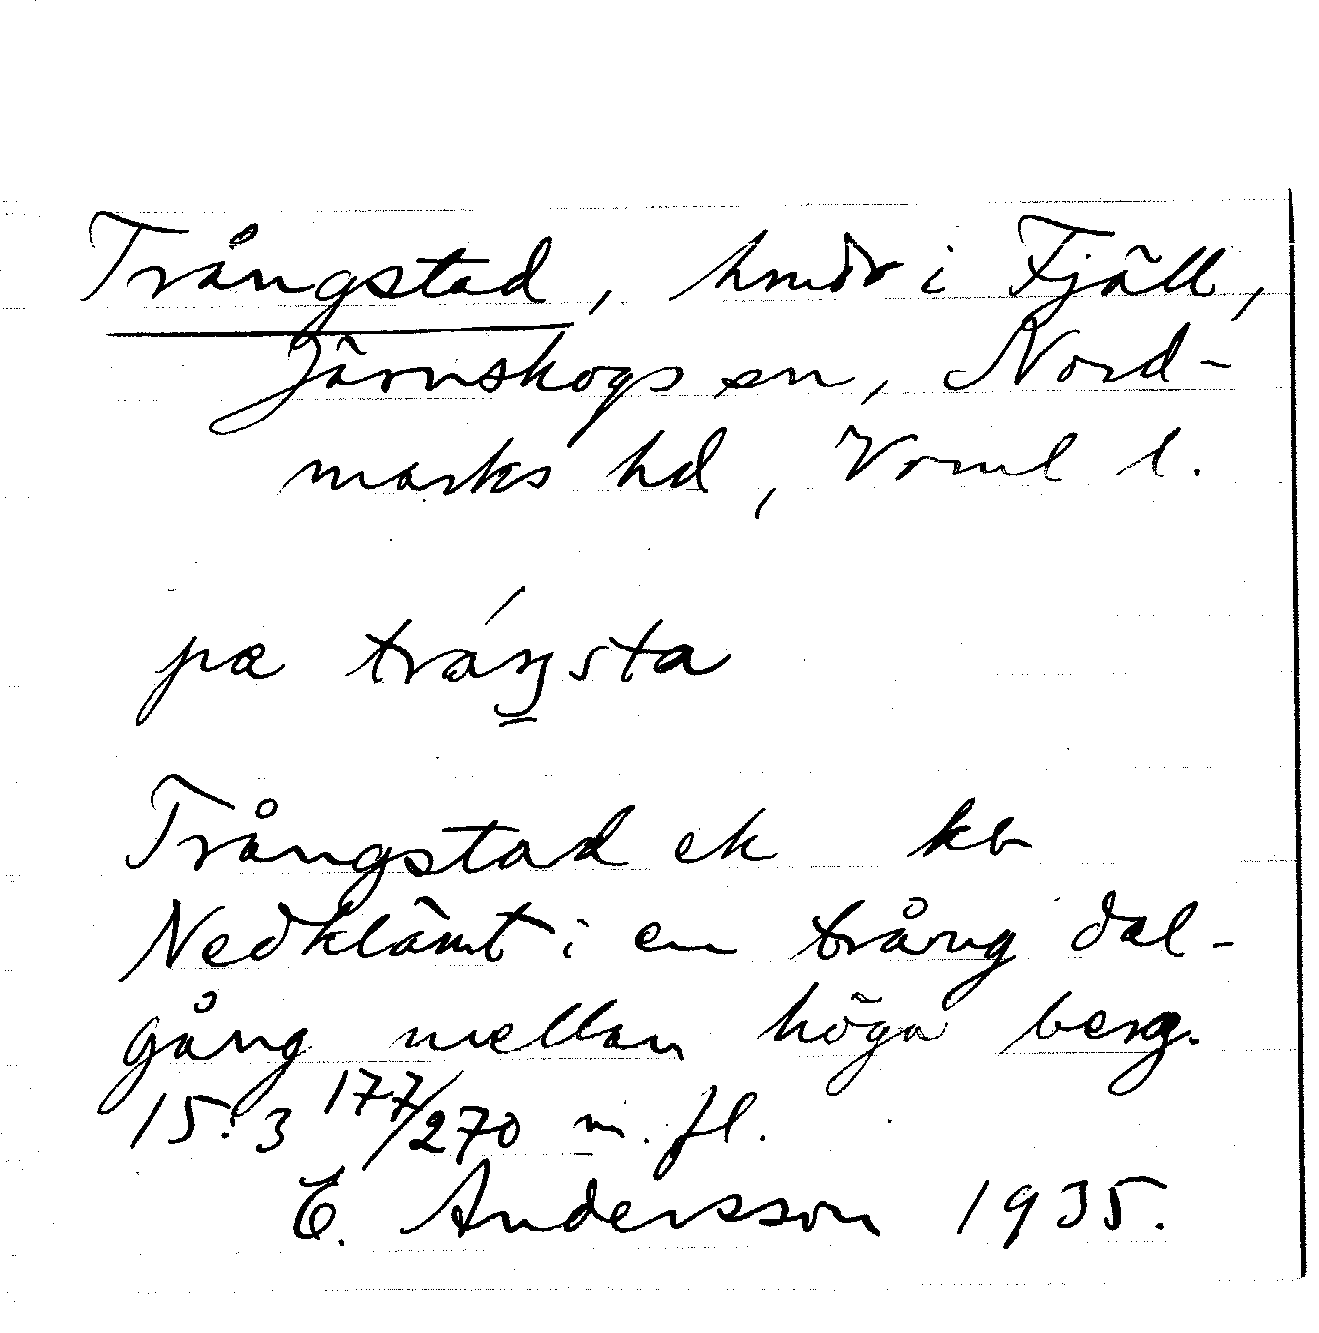 Trångstad, hmdr i Fjäll,
Järnskogs sn, Nord-
marks hd, Vrml l.
pa tráŋsta
Trångstad ek kb
Nedklämt i en trång dal-
gång mellan höga berg.
15:3 177/270 m. fl.
E. Andersson 1935.